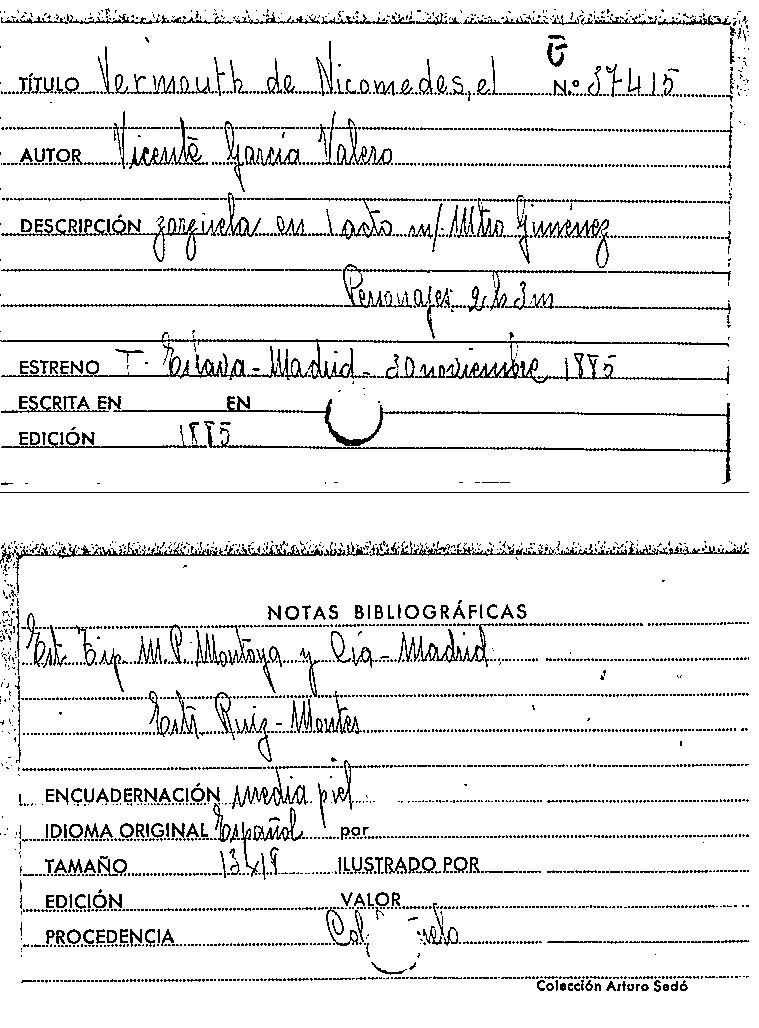 TÍTULO Vermouth de Nicomedes, el N.º 37415
AUTOR Vicente García Valero
DESCRIPCIÓN zarzuela en 1 acto m/ Mtro Giménez
Personajes 2h 3m
ESTRENO T. Eslava - Madrid - 30 noviembre 1885
ESCRITA EN EN
EDICIÓN 1885
NOTAS BIBLIOGRÁFICAS
Est. Tip M. P. Montoya y Cía - Madrid
Estr. Ruiz - Montes
ENCUADERNACIÓN media piel
IDIOMA ORIGINAL Español por
TAMAÑO 13x19 ILUSTRADO POR
EDICIÓN VALOR
PROCEDENCIA
Colección Arturo Sedó